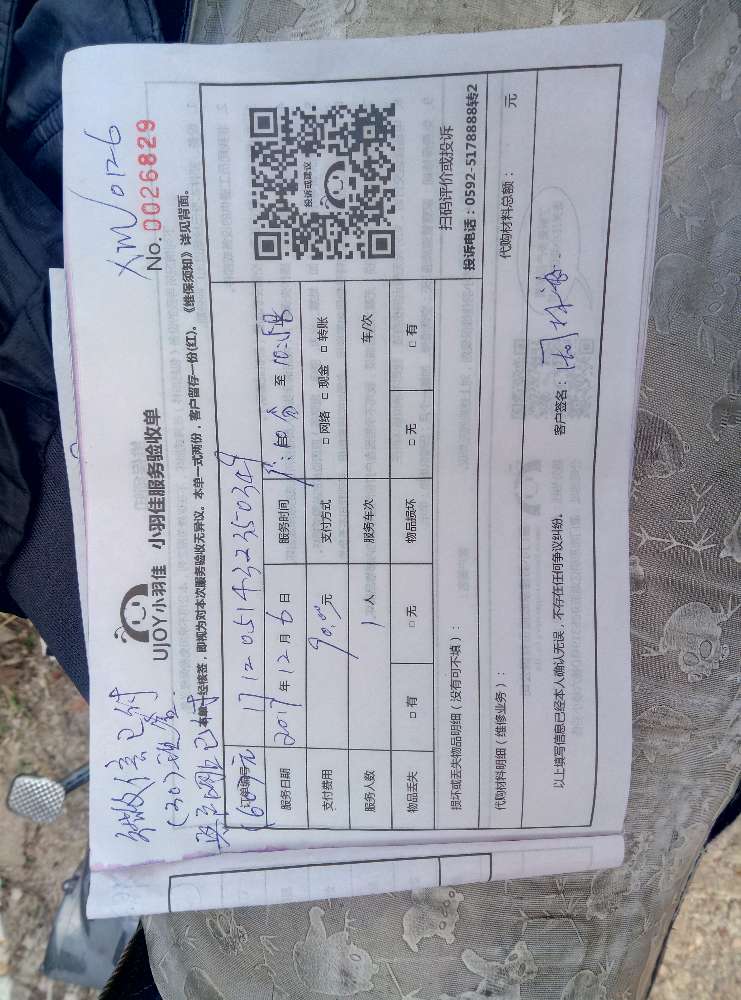 微信已付
(30)现金
XM/0126
No. 0026829
UJOY小羽佳 小羽佳服务验收单
本单一经核签，即视为对本次服务验收无异议。本单一式两份，客户留存一份(红)。《维保须知》详见背面。
(60)元
订单编号 17120514323350349
服务日期 2017年12月6日 服务时间 至
支付费用 90.00元 支付方式 □ 网络 □ 现金 □ 转账
服务人数 1 人 服务车次 车/次
物品丢失 □ 有 □ 无 物品损坏 □ 无 □ 有
投诉或建议
扫码评价或投诉
投诉电话：0592-5178888转2
损坏或丢失物品明细（没有可不填）：
代购材料明细（维修业务）： 代购材料总额： 元
以上填写信息已经本人确认无误，不存在任何争议纠纷。 客户签名：